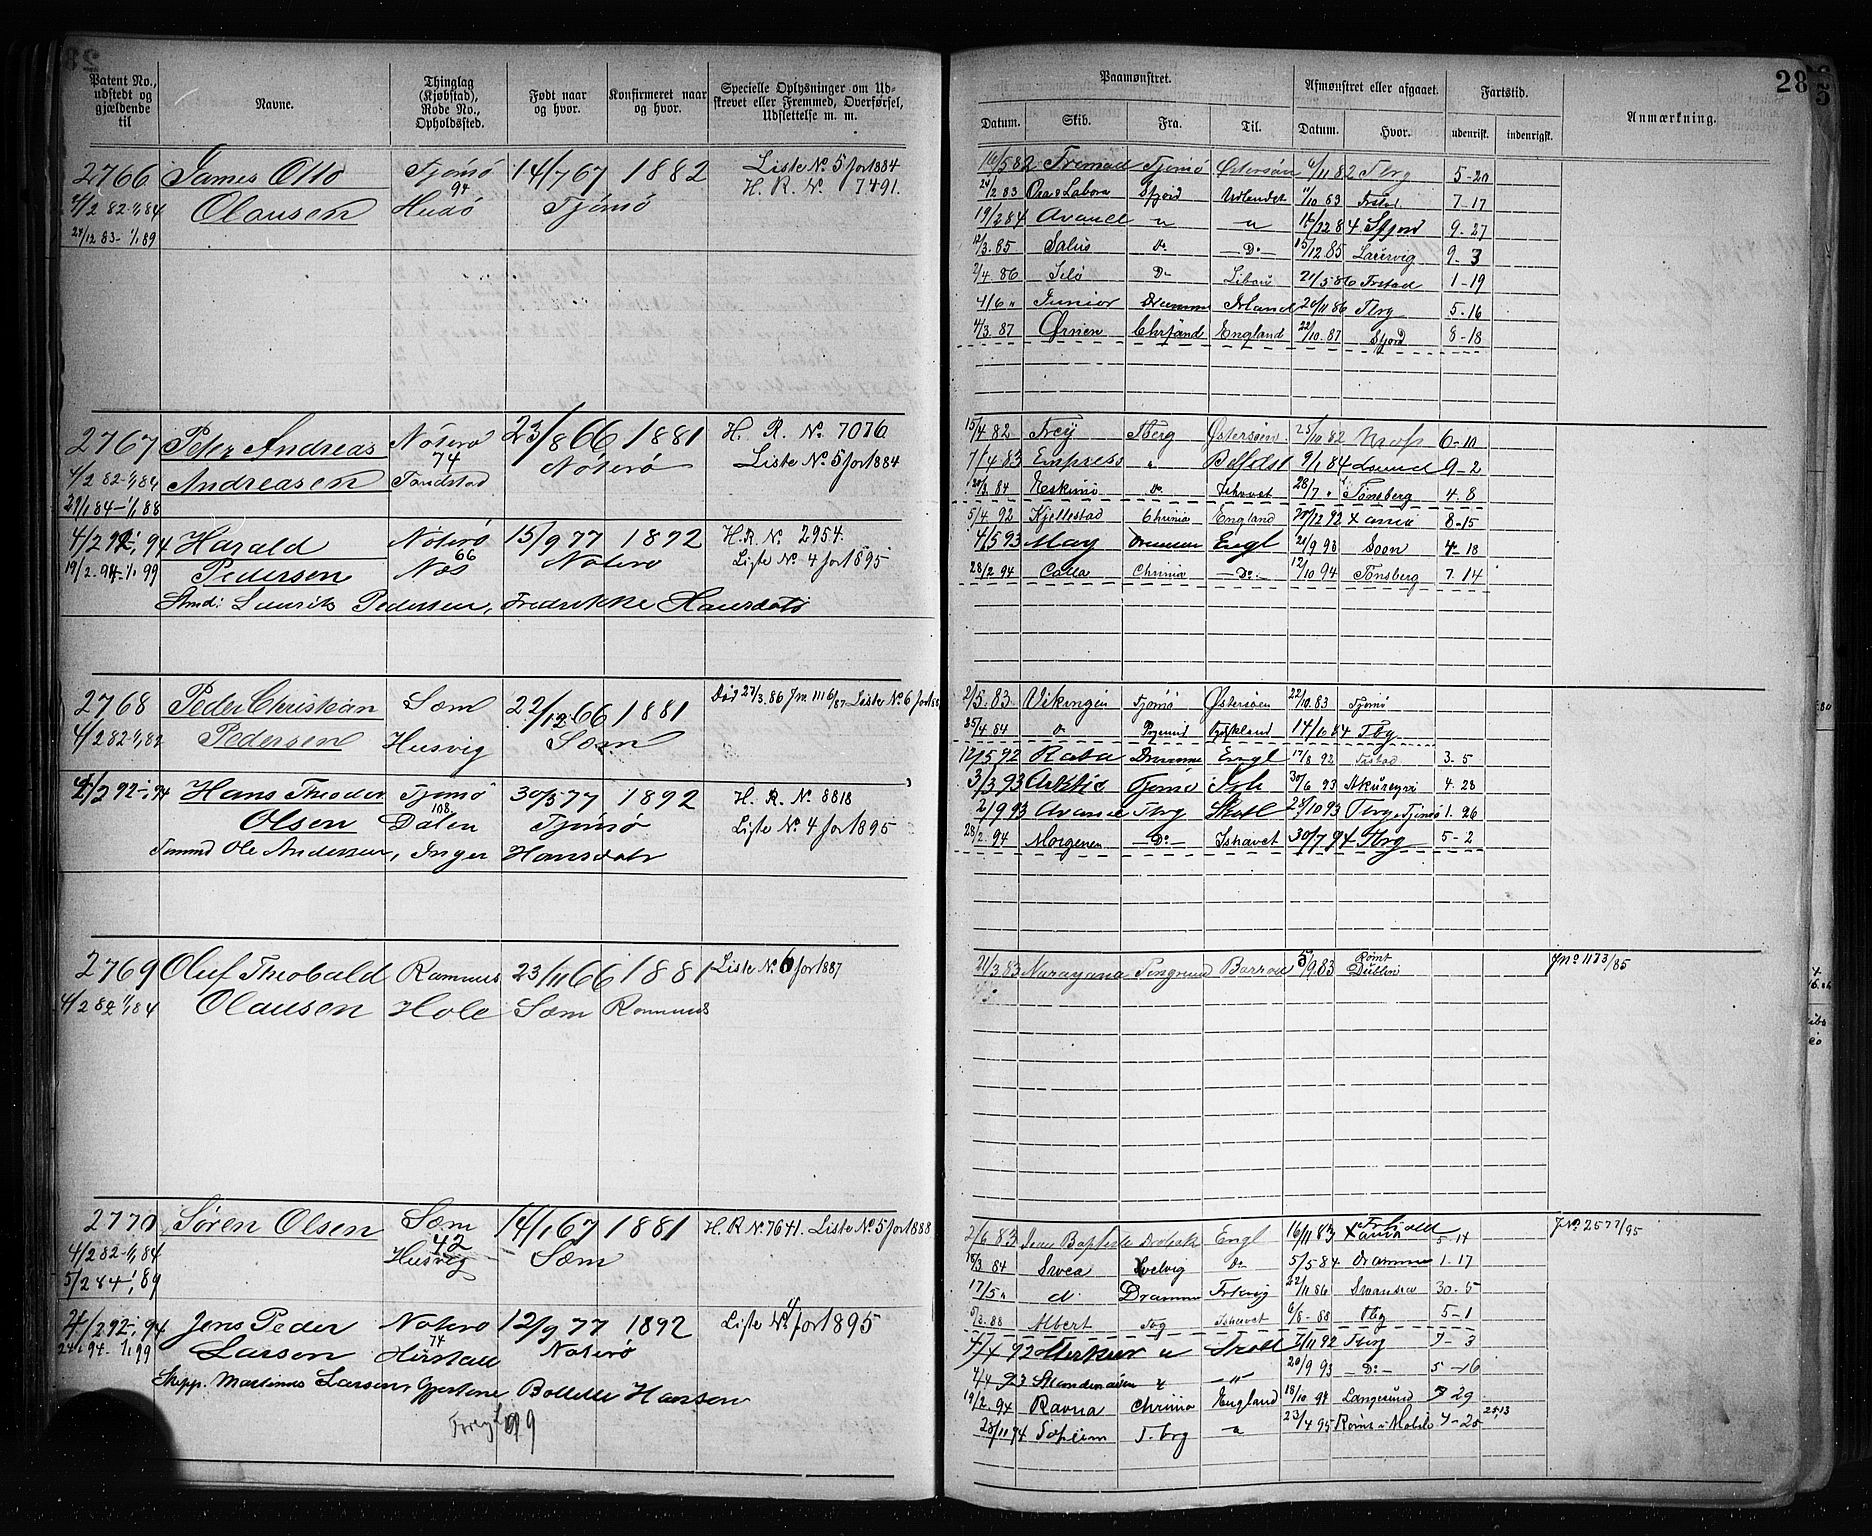 Patent No., udstedt og gjældende til
Navne.
Thinglag (Kjøbstad), Rode No., Opholdssted.
Født naar og hvor.
Konfirmeret naar og hvor.
Specielle Oplysninger om Udskrevet eller Fremmed, Overførsel, Udslettelse m. m.
2766 James Otto Tjømø 14/7 67 1882 Liste No 5 for 1884
94 H. R. No 7491.
4/2 82-1/1 84 Olausen Hudø Tjømø
24/12 83-1/1 89
2767 Peter Andreas Nøterø 23/8 66 1881 H. R. No 7076
74 Nøterø Liste No 5 for 1884
4/2 82-1/1 84 Andreasen
29/1 84-1/1 88
4/2 92 1/1 94 Harald Nøterø 15/9 77 1892 H.R. No 2954.
66
19/2 94-1/1 99 Pedersen Næs Nøterø Liste No 4 for 1895
Pedersen, Fredrikke Hansdatr
2768 Peder Christian Sæm 22/12 66 1881 Død 27/3 86 Liste No 6 for
4/2 82-1/1 84 Pedersen Husvig Sæm
4/2 92-1/1 94 Hans Theodor Tjømø 30/3 77 1892 H. R. No 8818
108
Olsen Dalen Tjømø Liste No 4 for 1895
Ole Andersen, Inger Hansdatr
2769 Oluf Theobald Ramnæs 23/11 66 1881 Liste No 6 for 1887
4/2 82 1/1 84 Olausen Hole Sæm Ramnæs
2770 Søren Olsen Sæm 14/1 67 1881 H. R No 7641. Liste No 5 for 1888
42
4/2 82-1/1 84 Husvig Sæm
5/2 84 1/1 89
4/2 92-1/1 94 Jens Peder Nøterø 12/9 77 1892 Liste No 4 for 1895
74
Larsen Nøterø
Skepp. Martinus Larsen, Bollette Hansen
99
28
Paamønstret.
Afmønstret eller afgaaet.
Fartstid.
Anmærkning.
Datum. Skib. Fra. Til. Datum. Hvor. udenrigsk. indenrigsk.
16/5 82 Fremad Tjømø Østersøen 6/11 82 Tbrg 5-20
24/2 83 Ora & Labora Sfjord Udlandet 1/10 83 Frstad 7-17
19/2 84 Avance " " 16/12 84 Sfjord 9-27
12/3 85 Salus Do Do 15/12 85 Laurvig 9-3
2/4 86 Do Libau 21/5 86 Frstad 1-19
4/6 " Junior Dramme Irland 20/11 86 Tbrg 5-16
4/3 87 Ørnen Chrsand England 22/10 87 Sfjord 8-18
15/4 82 Freÿ Tberg Østersøen 25/10 82 6-10
7/4 83 Empress " Belfast 9/1 84 9-2
84 Eskimo Do Ishavet 28/7 " Tønsberg 4-8
5/4 92 Kjellestad Chrinia England 20/12 92 Xania 8-15
4/5 93 May Drammen Engl 21/9 93 Soon 4-18
28/2 94 Catla Chrinia Do 12/10 94 Tønsberg 7-14
2/5 83 Vikingen Tjømø Østersøen 22/10 83 Tjømø
25/4 84 Do Tydskland 14/10 84 Tbg
12/5 92 Rota Dramme Engl 17/8 92 Frstad 3-5
3/3 93 Arktic Tjømø 30/6 93 Akureyri 4-28
2/9 93 Avance Tbrg Skotl 28/10 93 Tbrg Tjømø 1-26
28/2 94 Morgenen Do Ishavet 30/7 94 Tbrg 5-2
21/3 83 Narayana Barrow 5/9 83 Rømt Dublin Jno 1173/85
2/6 83 Jean Baptiste Drobak Engl 16/11 83 Xania 5-14 JNo 2577/95
16/3 84 Svea Svelvig Do 5/5 84 Dramme 1-17
17/5 " d. Dramme 22/11 86 Swansea 30-5
5/3 88 Albert Tbg Ishavet 6/8-88 Tbg 5-1
4/4 92 Merkur " 7/11 92 Tbrg 7-3
4/4 93 " " 20/9 93 Do 5-16
19/2 94 Ravna Chrinia England 18/10 94 Langesund 29
28/11 94 T.brg " 23/4 95 Rømt i Mobile 4-25